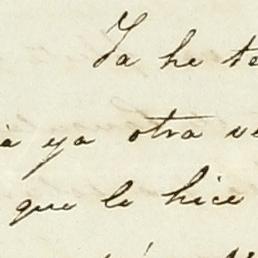 Ya he te
à ya otra ve
que le hice